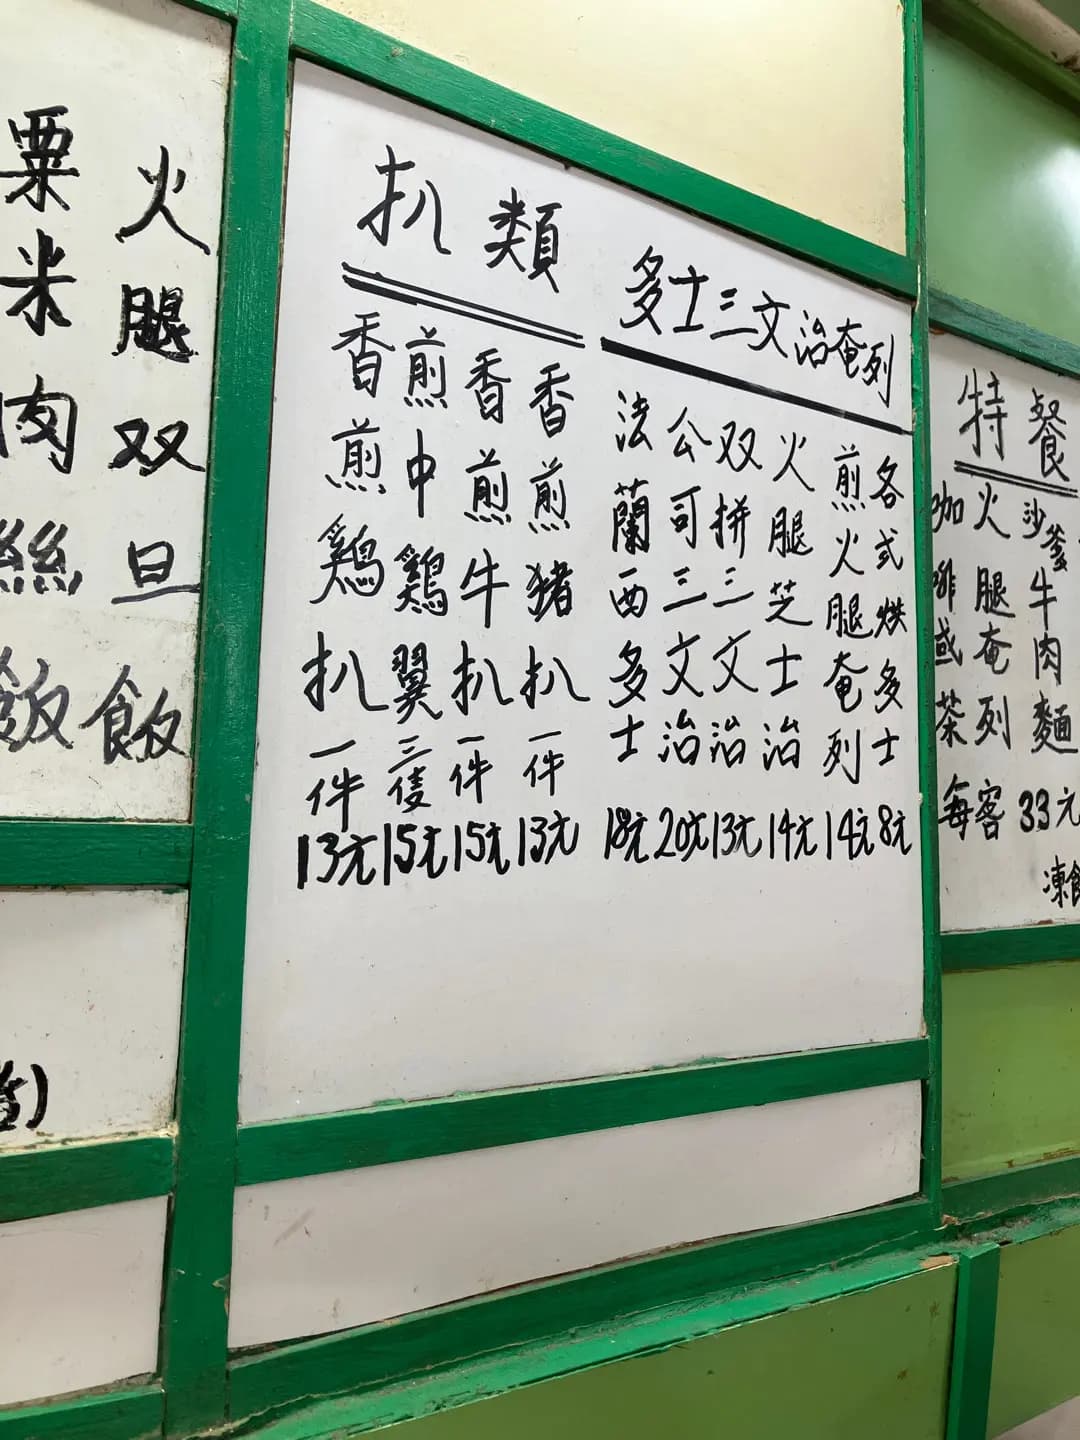 粟米肉絲飯
火腿双旦飯
扒類
香煎鷄扒一件13元
煎中鷄翼三隻15元
香煎牛扒一件15元
香煎猪扒一件13元
多士三文治奄列
法蘭西多士18元
公司三文治20元
双拼三文治13元
火腿芝士治14元
煎火腿奄列14元
各式烘多士8元
特餐
咖啡或茶
火腿奄列
每客
沙爹牛肉麵
33元
凍